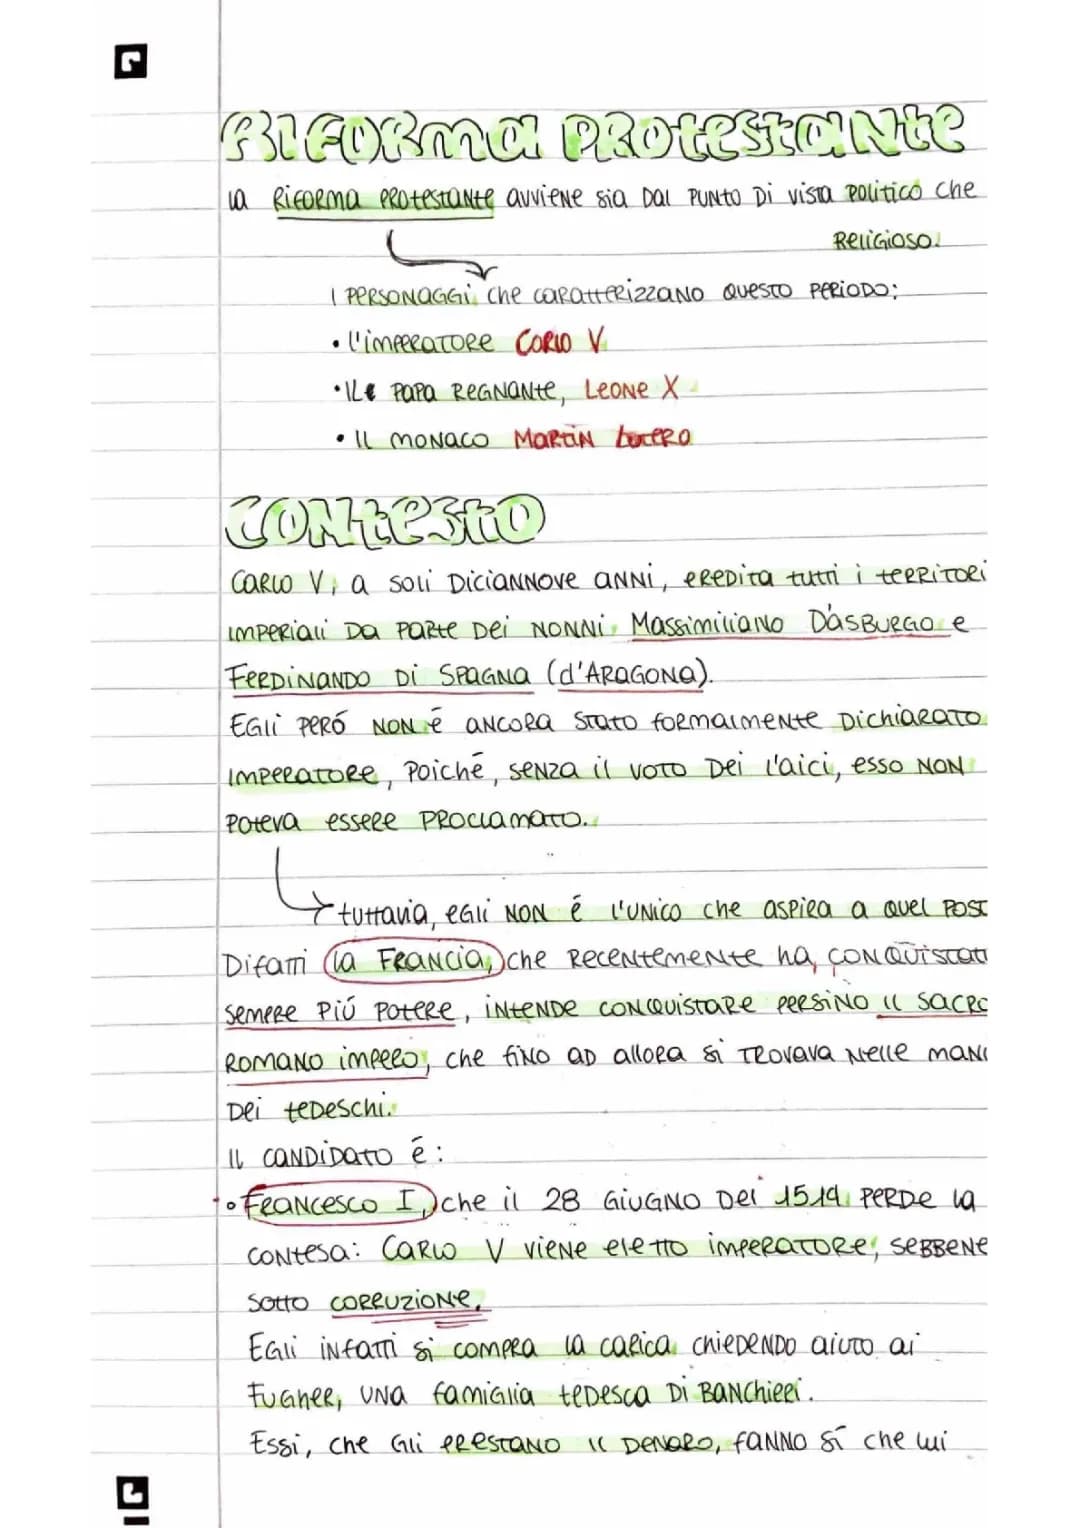 RIFORMA PROTESTANTE
la RIFORMA PROTESTANTE avviene sia dal punto di vista politico che
religioso.
I PERSONAGGI che caratterizzano questo periodo:
• l'imperatore CARLO V
• Il papa regnante, LEONE X
• Il monaco MARTIN LUTERO
CONTESTO
Carlo V, a soli diciannove anni, eredita tutti i territori
imperiali da parte dei nonni, Massimiliano D'Asburgo e
Ferdinando di Spagna (d'Aragona).
Egli peró non é ancora stato formalmente dichiarato
imperatore, poiché, senza il voto dei l'aici, esso non
poteva essere proclamato.
tuttavia, egli non é l'unico che aspira a quel post
Difatti la Francia, che recentemente ha conquistat
sempre piú potere, intende conquistare persino il Sacro
Romano impero, che fino ad allora si trovava nelle mani
dei tedeschi.
Il candidato é:
• Francesco I, che il 28 giugno del 1519 perde la
contesa: Carlo V viene eletto imperatore, sebbene
sotto corruzione.
Egli infatti si compra la carica chiedendo aiuto ai
Fugher, una famiglia tedesca di banchieri.
Essi, che gli prestano il denaro, fanno sí che lui